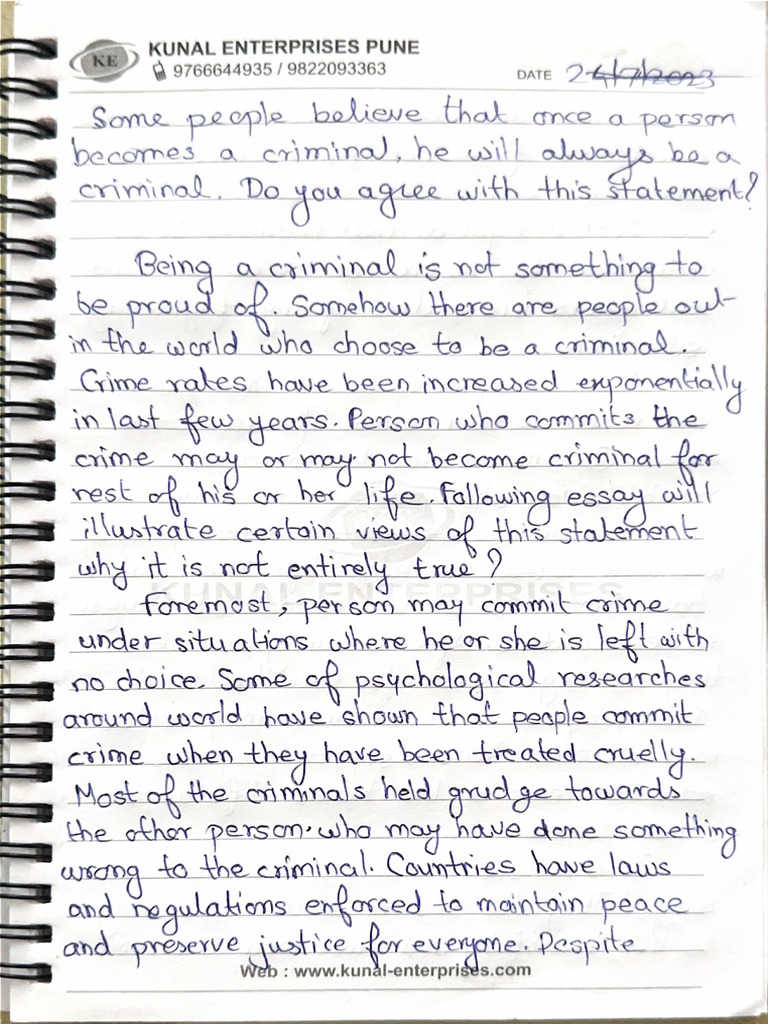 KE
KUNAL ENTERPRISES PUNE
9766644935 / 9822093363
DATE 24/7/2023
Some people believe that once a person
becomes a criminal, he will always be a
criminal. Do you agree with this statement?
Being a criminal is not something to
be proud of. Somehow there are people out
in the world who choose to be a criminal.
Crime rates have been increased exponentially
in last few years. Person who commits the
crime may or may not become criminal for
rest of his or her life. Following essay will
illustrate certain views of this statement
why it is not entirely true?
KUNAL ENTERPRISES
Foremost, person may commit crime
under situations where he or she is left with
no choice. Some of psychological researches
around world have shown that people commit
crime when they have been treated cruelly.
Most of the criminals held grudge towards
the other person who may have done something
wrong to the criminal. Countries have laws
and regulations enforced to maintain peace
and preserve justice for everyone. Despite
Web : www.kunal-enterprises.com